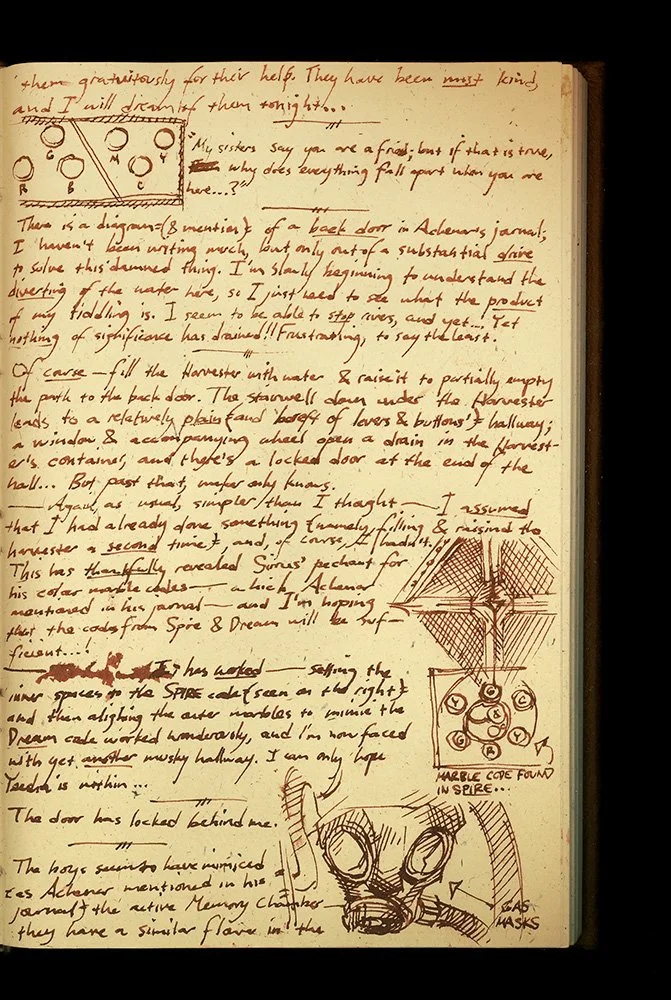 them gratuitously for their help. They have been most kind,
and I will dream of them tonight...
G M Y
R B C
"My sisters say you are a friend; but if that is true,
why does everything fall apart when you are
here...?"
There is a diagram {& mention} of a back door in Achenar's journal;
I haven't been writing much, but only out of a substantial drive
to solve this damned thing. I'm slowly beginning to understand the
diverting of the water here, so I just need to see what the product
of my fiddling is. I seem to be able to stop rivers, and yet... Yet
nothing of significance has drained!! Frustrating, to say the least.
Of course — fill the Harvester with water & raise it to partially empty
the path to the back door. The stairwell down under the Harvester
leads to a relatively plain {and bereft of levers & buttons!} hallway;
a window & accompanying wheel open a drain in the Harvest-
er's container, and there's a locked door at the end of the
hall... But past that, maker only knows.
— Again, as usual, simpler than I thought — I assumed
that I had already done something {namely, filling & raising the
harvester a second time}, and, of course, I hadn't.
This has thankfully revealed Sirrus' pechant for
his color marble codes — a hick Achenar
mentioned in his journal — and I'm hoping
that the codes from Spire & Dream will be suf-
ficient...!
It has worked — setting the
inner spaces to the SPIRE code {seen on the right}
and then aligning the outer marbles to mimic the
Dream code worked wonderously, and I'm now faced
with yet another musky hallway. I can only hope
Yeesha is within...
G
Y C
G R Y
MARBLE CODE FOUND
IN SPIRE...
The door has locked behind me.
The boys seem to have mimiced
{as Achenar mentioned in his
journal} the active Memory Chamber —
they have a similar flower in the
GAS
MASKS